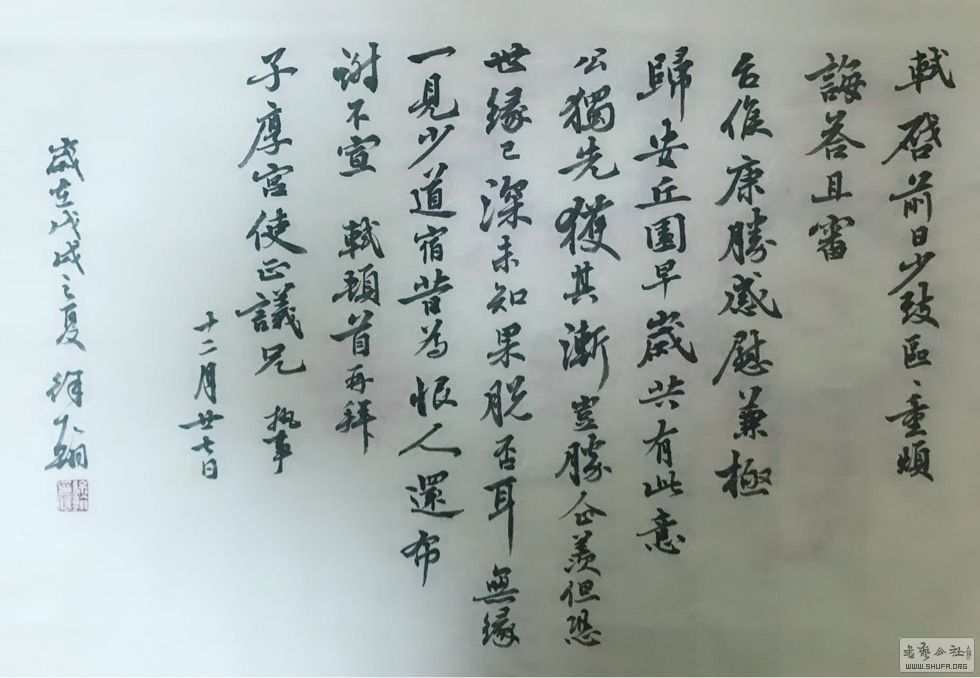 軾啓前日少致區〻重煩
誨答且審
台候康勝感慰兼極
歸安丘園早歲共有此意
公獨先獲其漸豈勝企羨但恐
世緣已深未知果脫否耳 無緣
一見少道宿昔為恨人還布
謝不宣 軾頓首再拜
子厚宮使正議兄 執事
十二月廿七日
歲在戊戌之夏 徐
書藝公社
WWW.SHUFA.ORG